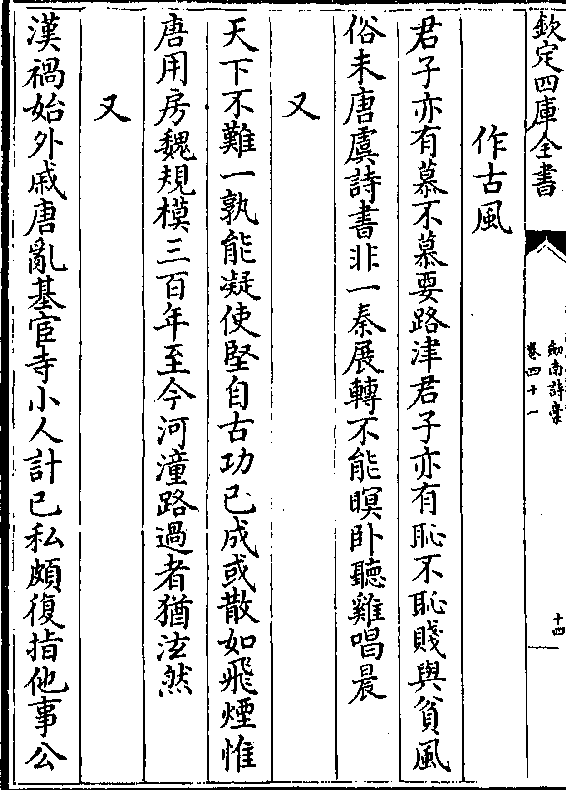 欽定四庫全書
劍南詩稾
卷四十一
十四
作古風
君子亦有慕不慕要路津君子亦有恥不恥賤與貧風
俗未唐虞詩書非一秦展轉不能瞑卧聽雞唱晨
又
天下不難一孰能凝使堅自古功已成或散如飛煙惟
唐用房魏規模三百年至今河潼路過者猶泫然
又
漢禍始外戚唐亂基宦寺小人計已私頗復指他事公